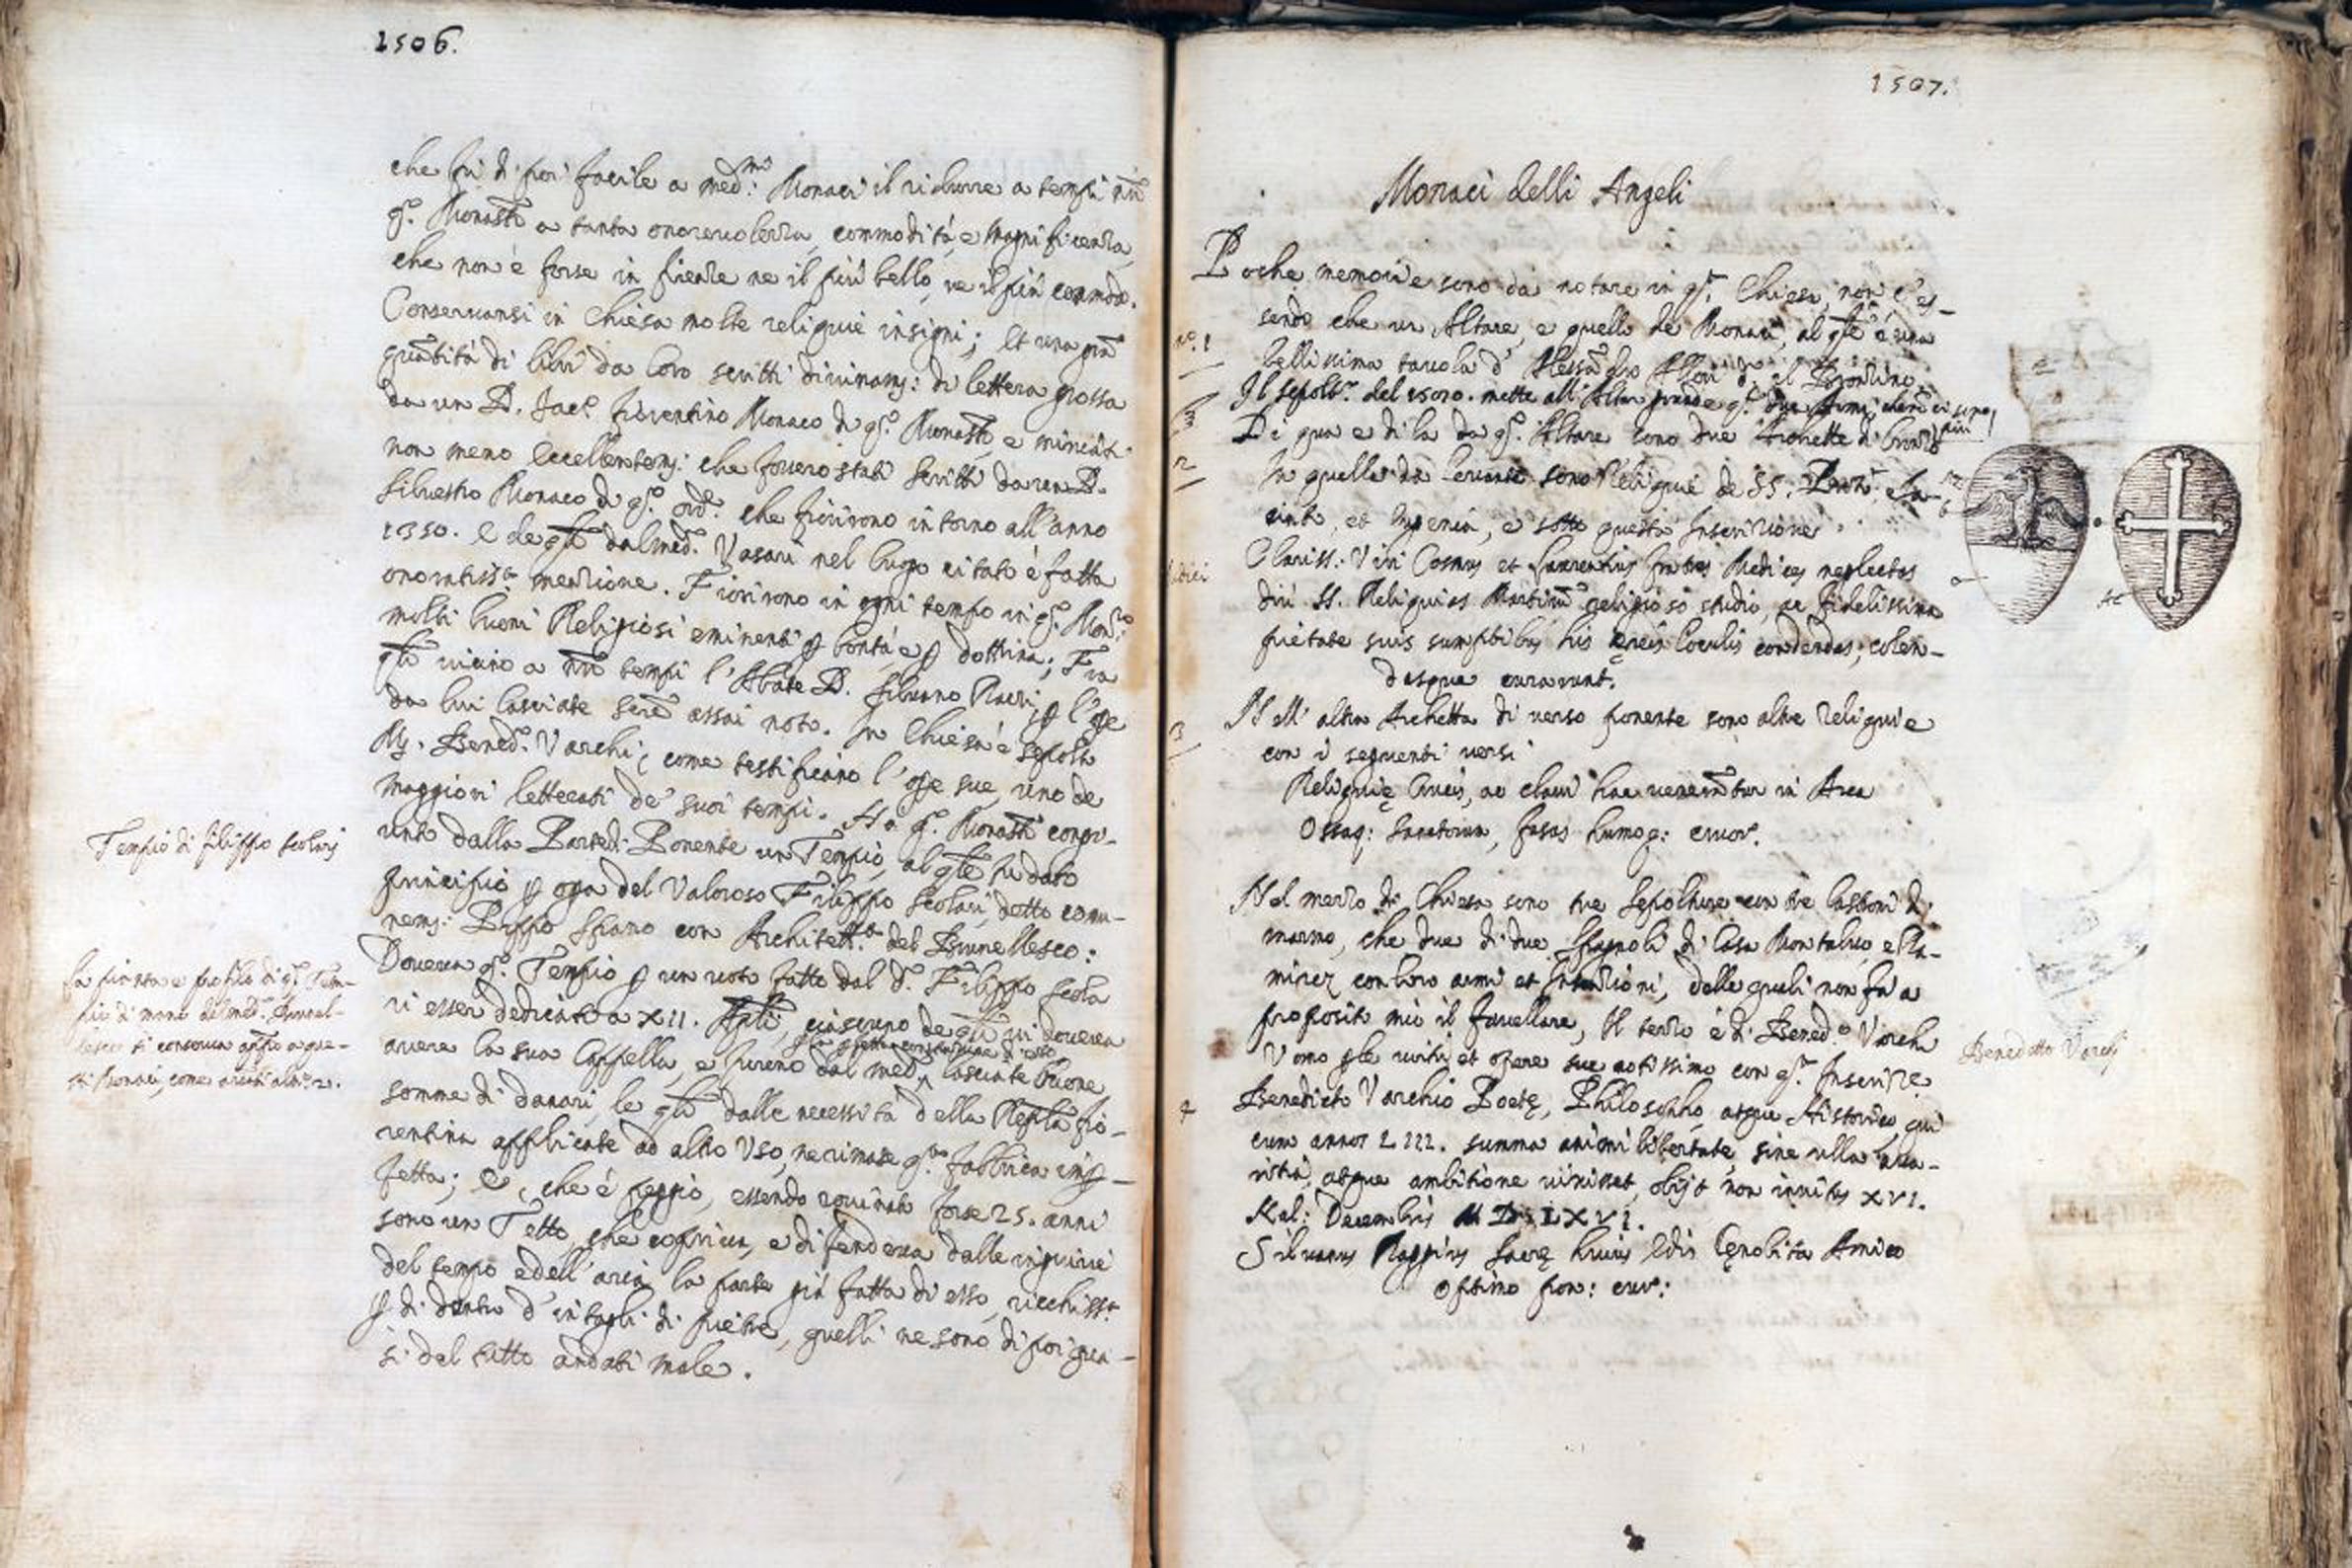 1506.
che fu di poi facile a med.mi Monaci il ridurre a tempi nri
q.o Monast.o a tanta onorevolezza, commodità, e magnificenza,
che non è forse in firenze ne il più bello, ne il più commodo.
Conservansi in Chiesa molte reliquie insigni; et una gra
quãtità di libri da loro scritti divinam: di lettera grossa
da un D. Jac.o fiorentino Monaco di q.o Monast.o, e miniati
non meno eccellentem: che fossero stati scritti da un D.
Silvestro Monaco di q.o ord.e che fiorirono intorno all'anno
1350. e de qli dal med.o Vasari nel luogo citato è fatta
onoratiss.a menzione. Fiorirono in ogni tempo in q.o Mon.ro
molti buoni Religiosi eminenti p bontà e p dottrina; Fra
qli vicino a nri tempi l'Abate D. Silvano Razzi, p l'ope
da lui lasciate assai noto. In Chiesa è sepolto
M. Bened.o Varchi, come testificano l'ope sue, uno de
maggiori letterati de' suoi tempi. Ha q.o Monast.o congi-
unto dalla Parte di Ponente un Tempio, al qle fu dato
principio p opa del Valoroso Filippo Scolari, detto comu-
nem: Pippo Spano con Architett.a del Brunellesco:
Doveva q.o Tempio p un voto fatto dal d.o Filippo Scola
ri esser dedicato a XII. Apli, ciascuno de qli vi doveva
avere la sua Cappella, e furono dal med.o lasciate buone
somme di danari, le qli dalle necessità della Repla fio-
rentina applicate ad altro Uso, ne rimase q.a fabbrica imp-
fetta; e, che è peggio, essendo rovinato forse 25. anni
sono un Tetto, che copriva, e difendeva dalle ingiurie
del tempo e dell'aria la parte già fatta di esso, ricchiss.a
p di dentro d'intagli di pietre, quelli ne sono di poi qua-
si del tutto andati male.
Tempio di filippo scolari
La pianta e profilo di q.o Tem-
pio di mano del med.o Brunel-
lesco si conserva appo que-
sti Monaci, come
1507.
Monaci delli Angeli
Poche memorie sono da notare in q.a Chiesa, non v'es-
sendo che un Altare, e quello de Monaci, al qle è una
bellissima tavola d'Alessãdro Allori d.o il Bronzino,
Il sepolt.o del 1580. mette all'Altar grande q.e due Armi,
Di qua e di la da q.o Altare sono due Archette di bronzo
In quella da levante sono Reliquie de SS. Prot.o e Ja-
cinto, et Nemesia, e sotto questa Inscrizione
Clariss: Viri Cosmus et Laurentius fratres Medices neglectas
diu SS. Reliquias Martirũ religioso studio, ac fidelissima
pietate suis sumptibus his ęreis loculis condendas, colen-
dasque curarunt.
Nell'altra Archetta di verso ponente sono altre reliquie
con i seguenti versi
Reliquię Crucis, ac clavi hac venerãtur in Arca
Ossaq: Sanctorum, fusus humoq: cruor.
Nel mezzo di Chiesa sono tre Sepolture con tre lastroni di
marmo, che due di due Spagnoli di Casa Montalvo, e Ra-
mirez con loro armi et Inscrizioni, delle quali non fa a
proposito mio il favellare, Il terzo è di Bened.o Varchi
Uomo p le virtù et opere sue notissimo con q.a Inscriz.e
Benedicto Varchio Poetę, Philosopho, atque Historico, qui
cum annos LIII. summa animi libertate, sine ulla ava-
ritia, atque ambitione vixisset, obijt non invitus XVI.
Kal: Decembris MDLXVI.
Silvanus Razzius Sacrę huius Ędis Cęnobita Amico
optimo pon: cur:
no. 1
2
3
4
Benedetto Varchi